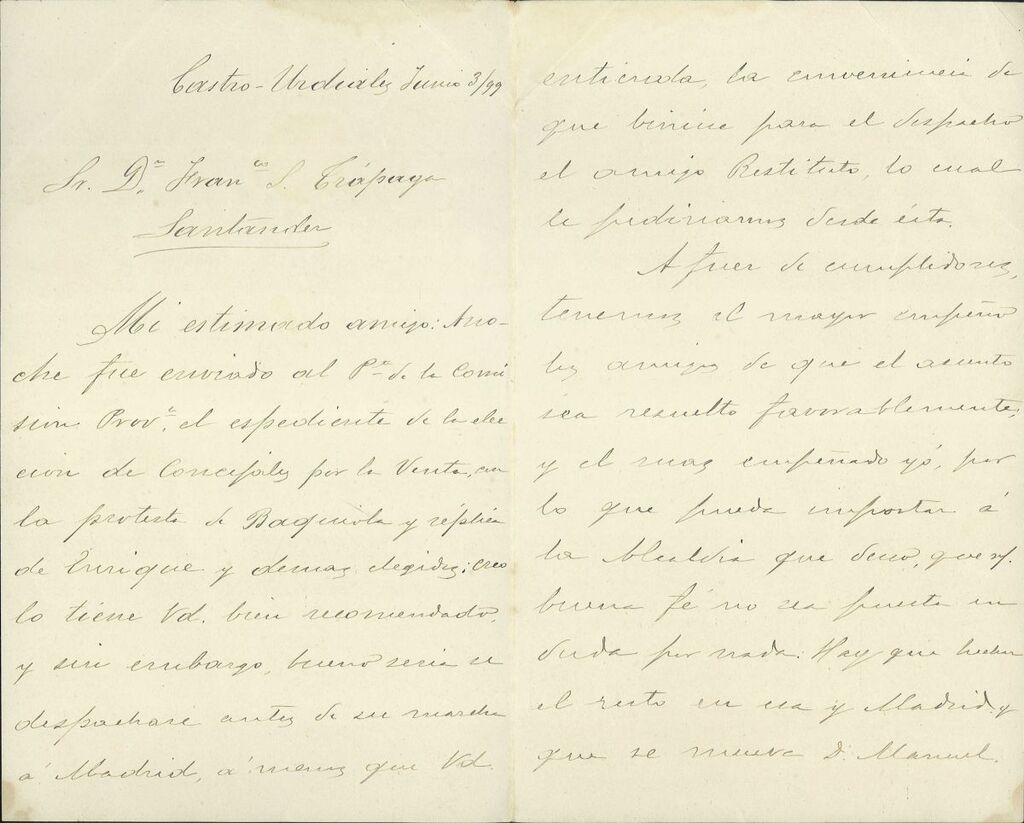 Castro-Urdiales Junio 3/99
Sr. D.n Fran.co S. Trápaga
Santander
Mi estimado amigo: Ano-
che fue enviado al P.te de la Comi
sion Prov.l el espediente de la elec
cion de Concejales por la Venta, con
la protesta de Baquiola y réplica
de Enrique y demas elegidos; creo
lo tiene Vd. bien recomendado,
y sin embargo, bueno seria se
despachase antes de su marcha
á Madrid, á menos que Vd.
entienda, la conveniencia de
que biniese para el despacho
el amigo Restituto, lo cual
le pediriamos desde ésta.
A fuer de cumplidores,
tenemos el mayor empeño
los amigos de que el asunto
sea resuelto favorablemente,
y el mas empeñado yó, por
lo que pueda importar á
la Alcaldia que deseo, que
buena fé no sea puesta en
duda por nada. Hay que hechar
el resto en esa y Madrid y
que se mueva D. Manuel.